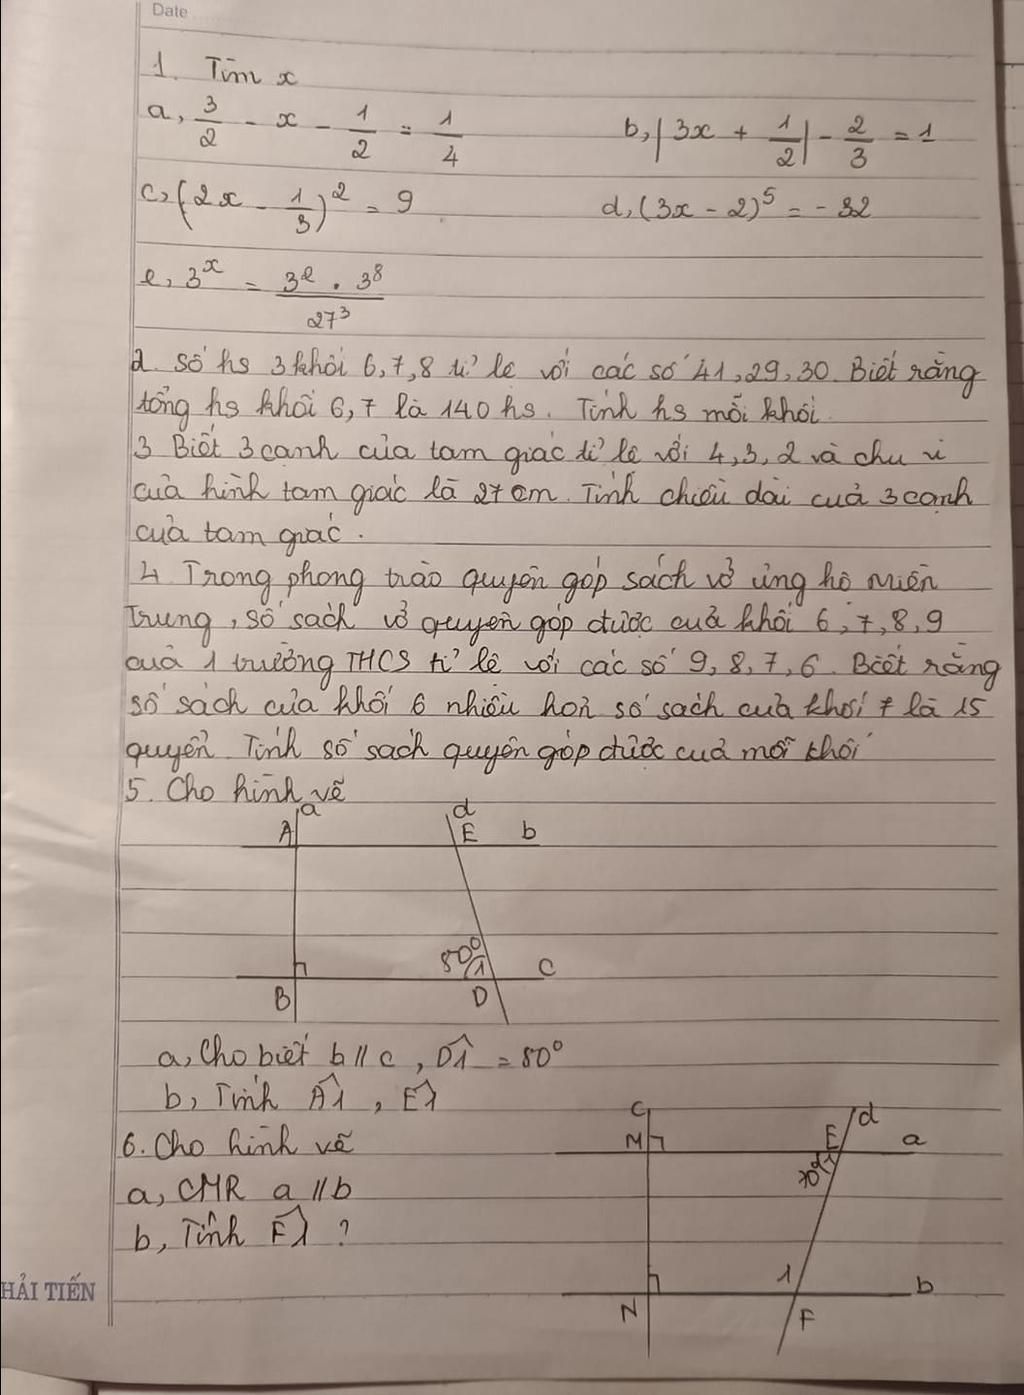 Date
1. Tìm x
a, 3/2 - x - 1/2 = 1/4    b, |3x + 1/2| - 2/3 = 1
c, (2x - 1/3)² = 9    d, (3x - 2)⁵ = -32
e, 3ˣ = 3² . 3⁸ / 27³
2. Số hs 3 khối 6, 7, 8 tỉ lệ với các số 41, 29, 30. Biết rằng
tổng hs khối 6, 7 là 140 hs. Tính hs mỗi khối.
3 Biết 3 cạnh của tam giác tỉ lệ với 4, 3, 2 và chu vi
của hình tam giác là 27 cm. Tính chiều dài của 3 cạnh
của tam giác.
4. Trong phong trào quyên góp sách vở ủng hộ miền
Trung, số sách vở quyên góp được của khối 6, 7, 8, 9
của 1 trường THCS tỉ lệ với các số 9, 8, 7, 6. Biết rằng
số sách của khối 6 nhiều hơn số sách của khối 7 là 15
quyển. Tính số sách quyên góp được của mỗi khối
5. Cho hình vẽ
a d
A E b
80° 1 c
B D
a, Cho biết b // c, D̂1 = 80°
b, Tính Â1, Ê1
C d
6. Cho hình vẽ M E a
a, CMR a // b 70° 1
b, Tính F̂1 ?
1 b
HẢI TIẾN
N F